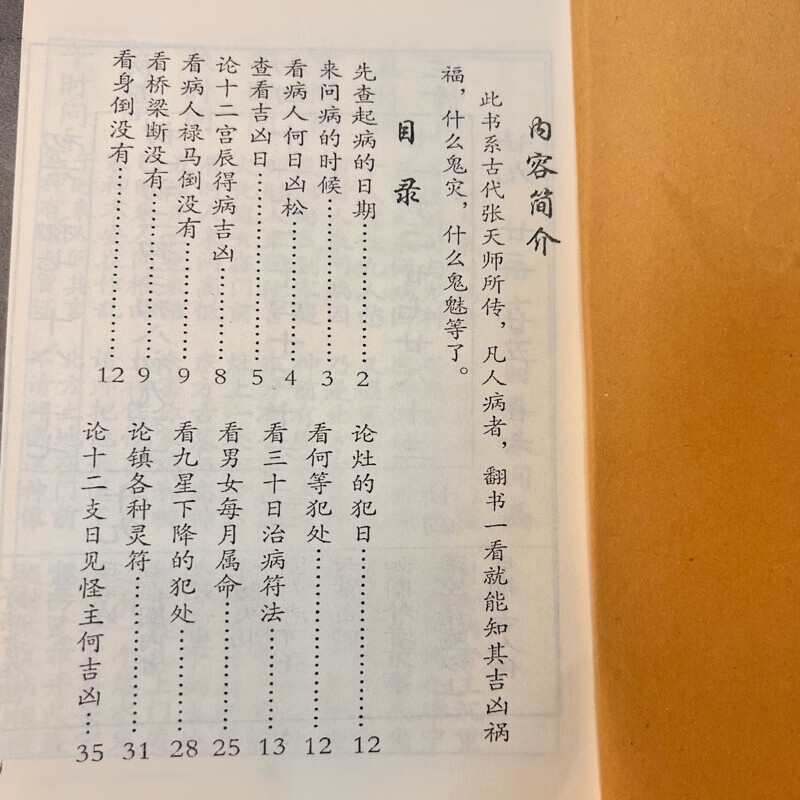 内容简介
此书系古代张天师所传，凡人病者，翻书一看就能知其吉凶祸
福，什么鬼灾，什么鬼魅等了。
目录
先查起病的日期……2
来问病的时候……3
看病人何日凶松……4
查看吉凶日……5
论十二宫辰得病吉凶……8
看病人禄马倒没有……9
看桥梁断没有……9
看身倒没有……12
论灶的犯日……12
看何等犯处……12
看三十日治病符法……13
看男女每月属命……25
看九星下降的犯处……28
论镇各种灵符……31
论十二支日见怪主何吉凶…35